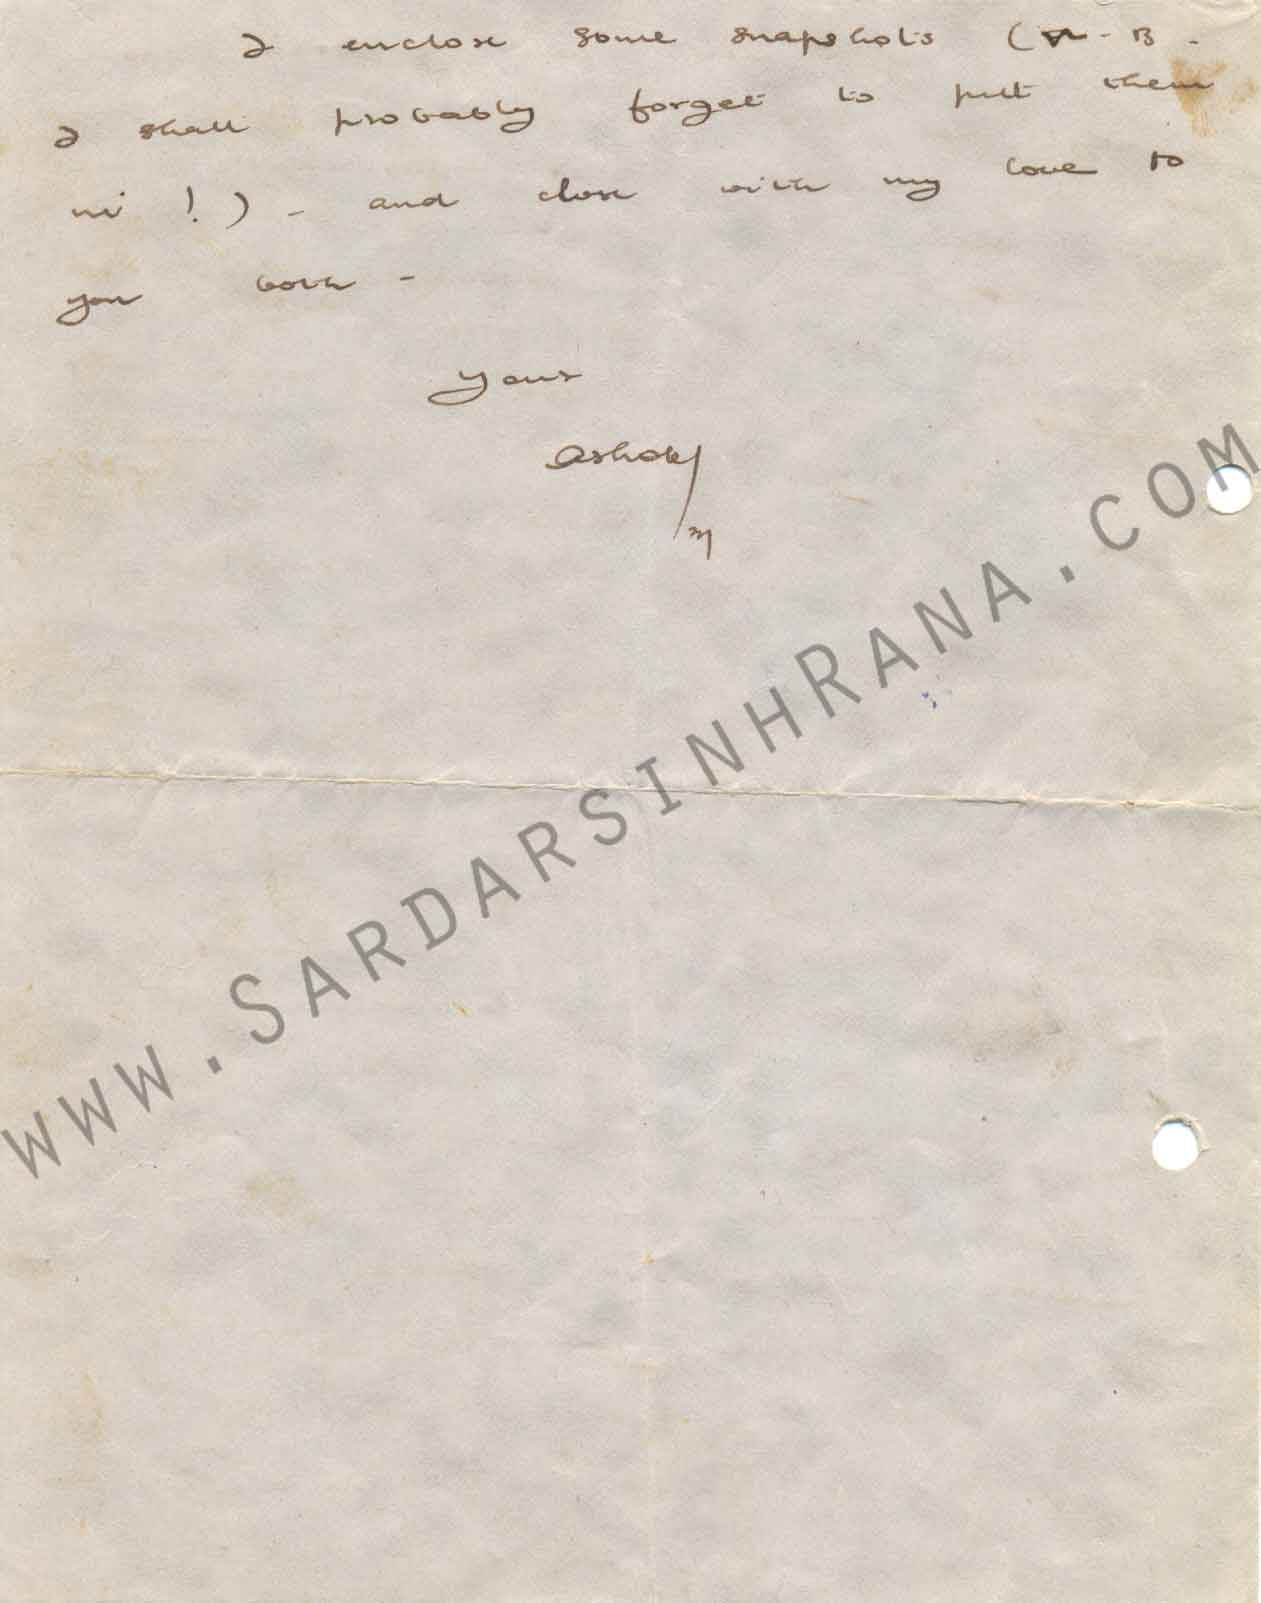 I enclose some snapshots (N.B.
I shall probably forget to put them
in!) - and close with my love to
you both -
Your
Ashok
www.SardarsinhRana.com